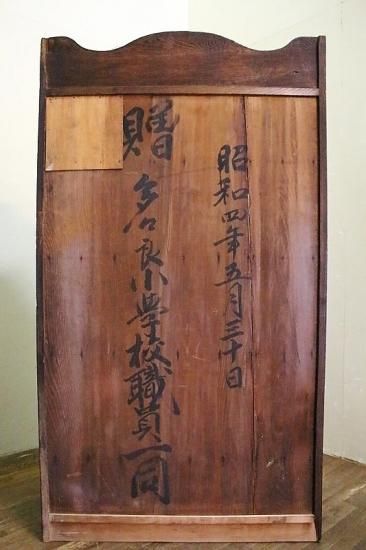 昭和四年五月三十日
贈 多良小學校職員一同